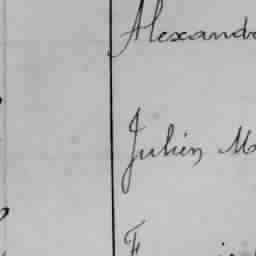 Alexand
Julien M
F